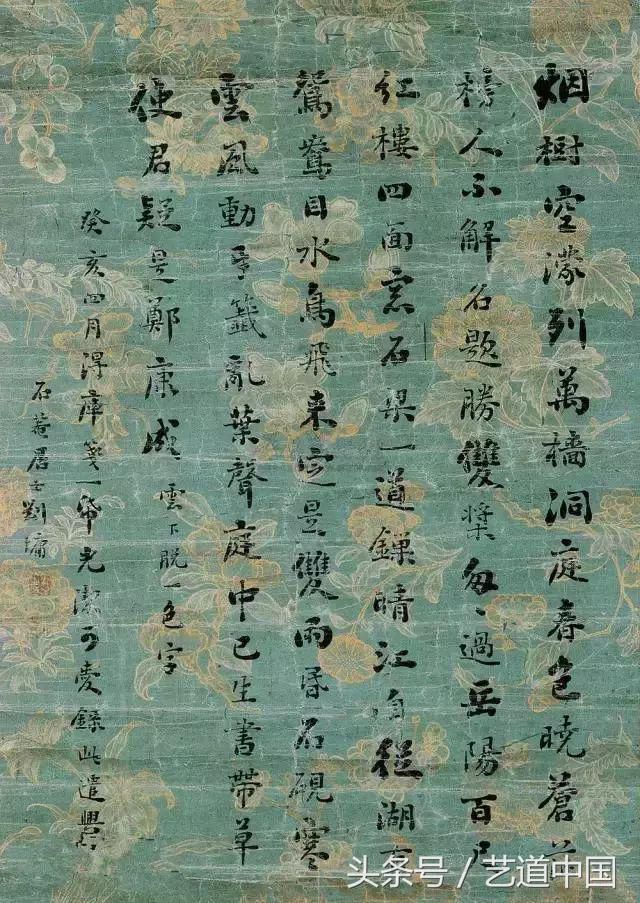 烟樹空濛列萬檣洞庭春色曉蒼
榜人不解名題勝雙槳匆〻過岳陽百尺
紅樓四面窓石梁一道鏁晴江自從湖有
鴛鴦目水鳥飛來定是雙雨昏石硯寒
雲風動牙籤亂葉聲庭中已生書帶草
使君疑是鄭康成 雲下脱一色字
癸亥四月得庫箋一帋光潔可愛錄此遣興
石菴居士劉墉
头条号 / 艺道中国